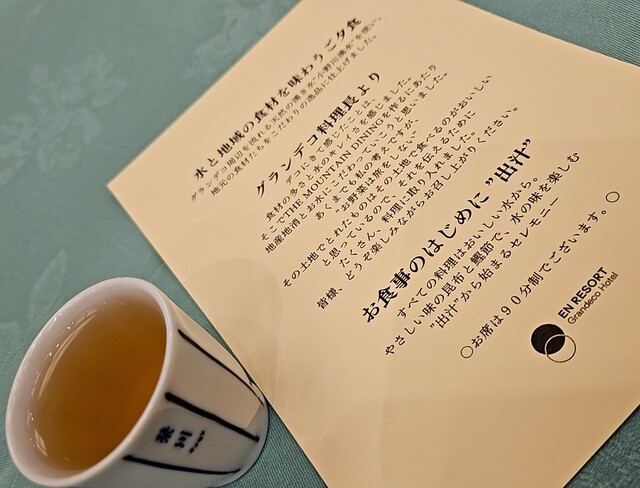 水と地域の食材を味わうご夕食
グランデコ周辺を流れる天然の湧き水“小野川湧水”を使い、
地元の食材たちをこだわりの逸品に仕上げました。
グランデコ料理長より
デコにきて感じたことは、
食材の多さと水のキレイさを感じました。
そこでTHE MOUNTAIN DININGを作るにあたり
地産地消とお水にこだわっていこうと思いました。
あくまでも私の考えですが、
“お野菜は旅をしない”
その土地でとれたものはその土地で食べるのがおいしい
と思っているので、それを伝えるために
たくさん、料理に取り入れました。
皆様、どうぞ楽しみながらお召し上がりください。
お食事のはじめに ”出汁”
すべての料理はおいしい水から。
やさしい味の昆布と鰹節で、水の味を楽しむ
”出汁”から始まるセレモニー
○お席は90分制でございます。○
EN RESORT
Grandeco Hotel